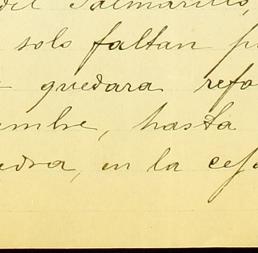 del Palmarillo,
solo faltan p
quedara refo
embre, hasta
edra, en la cesa